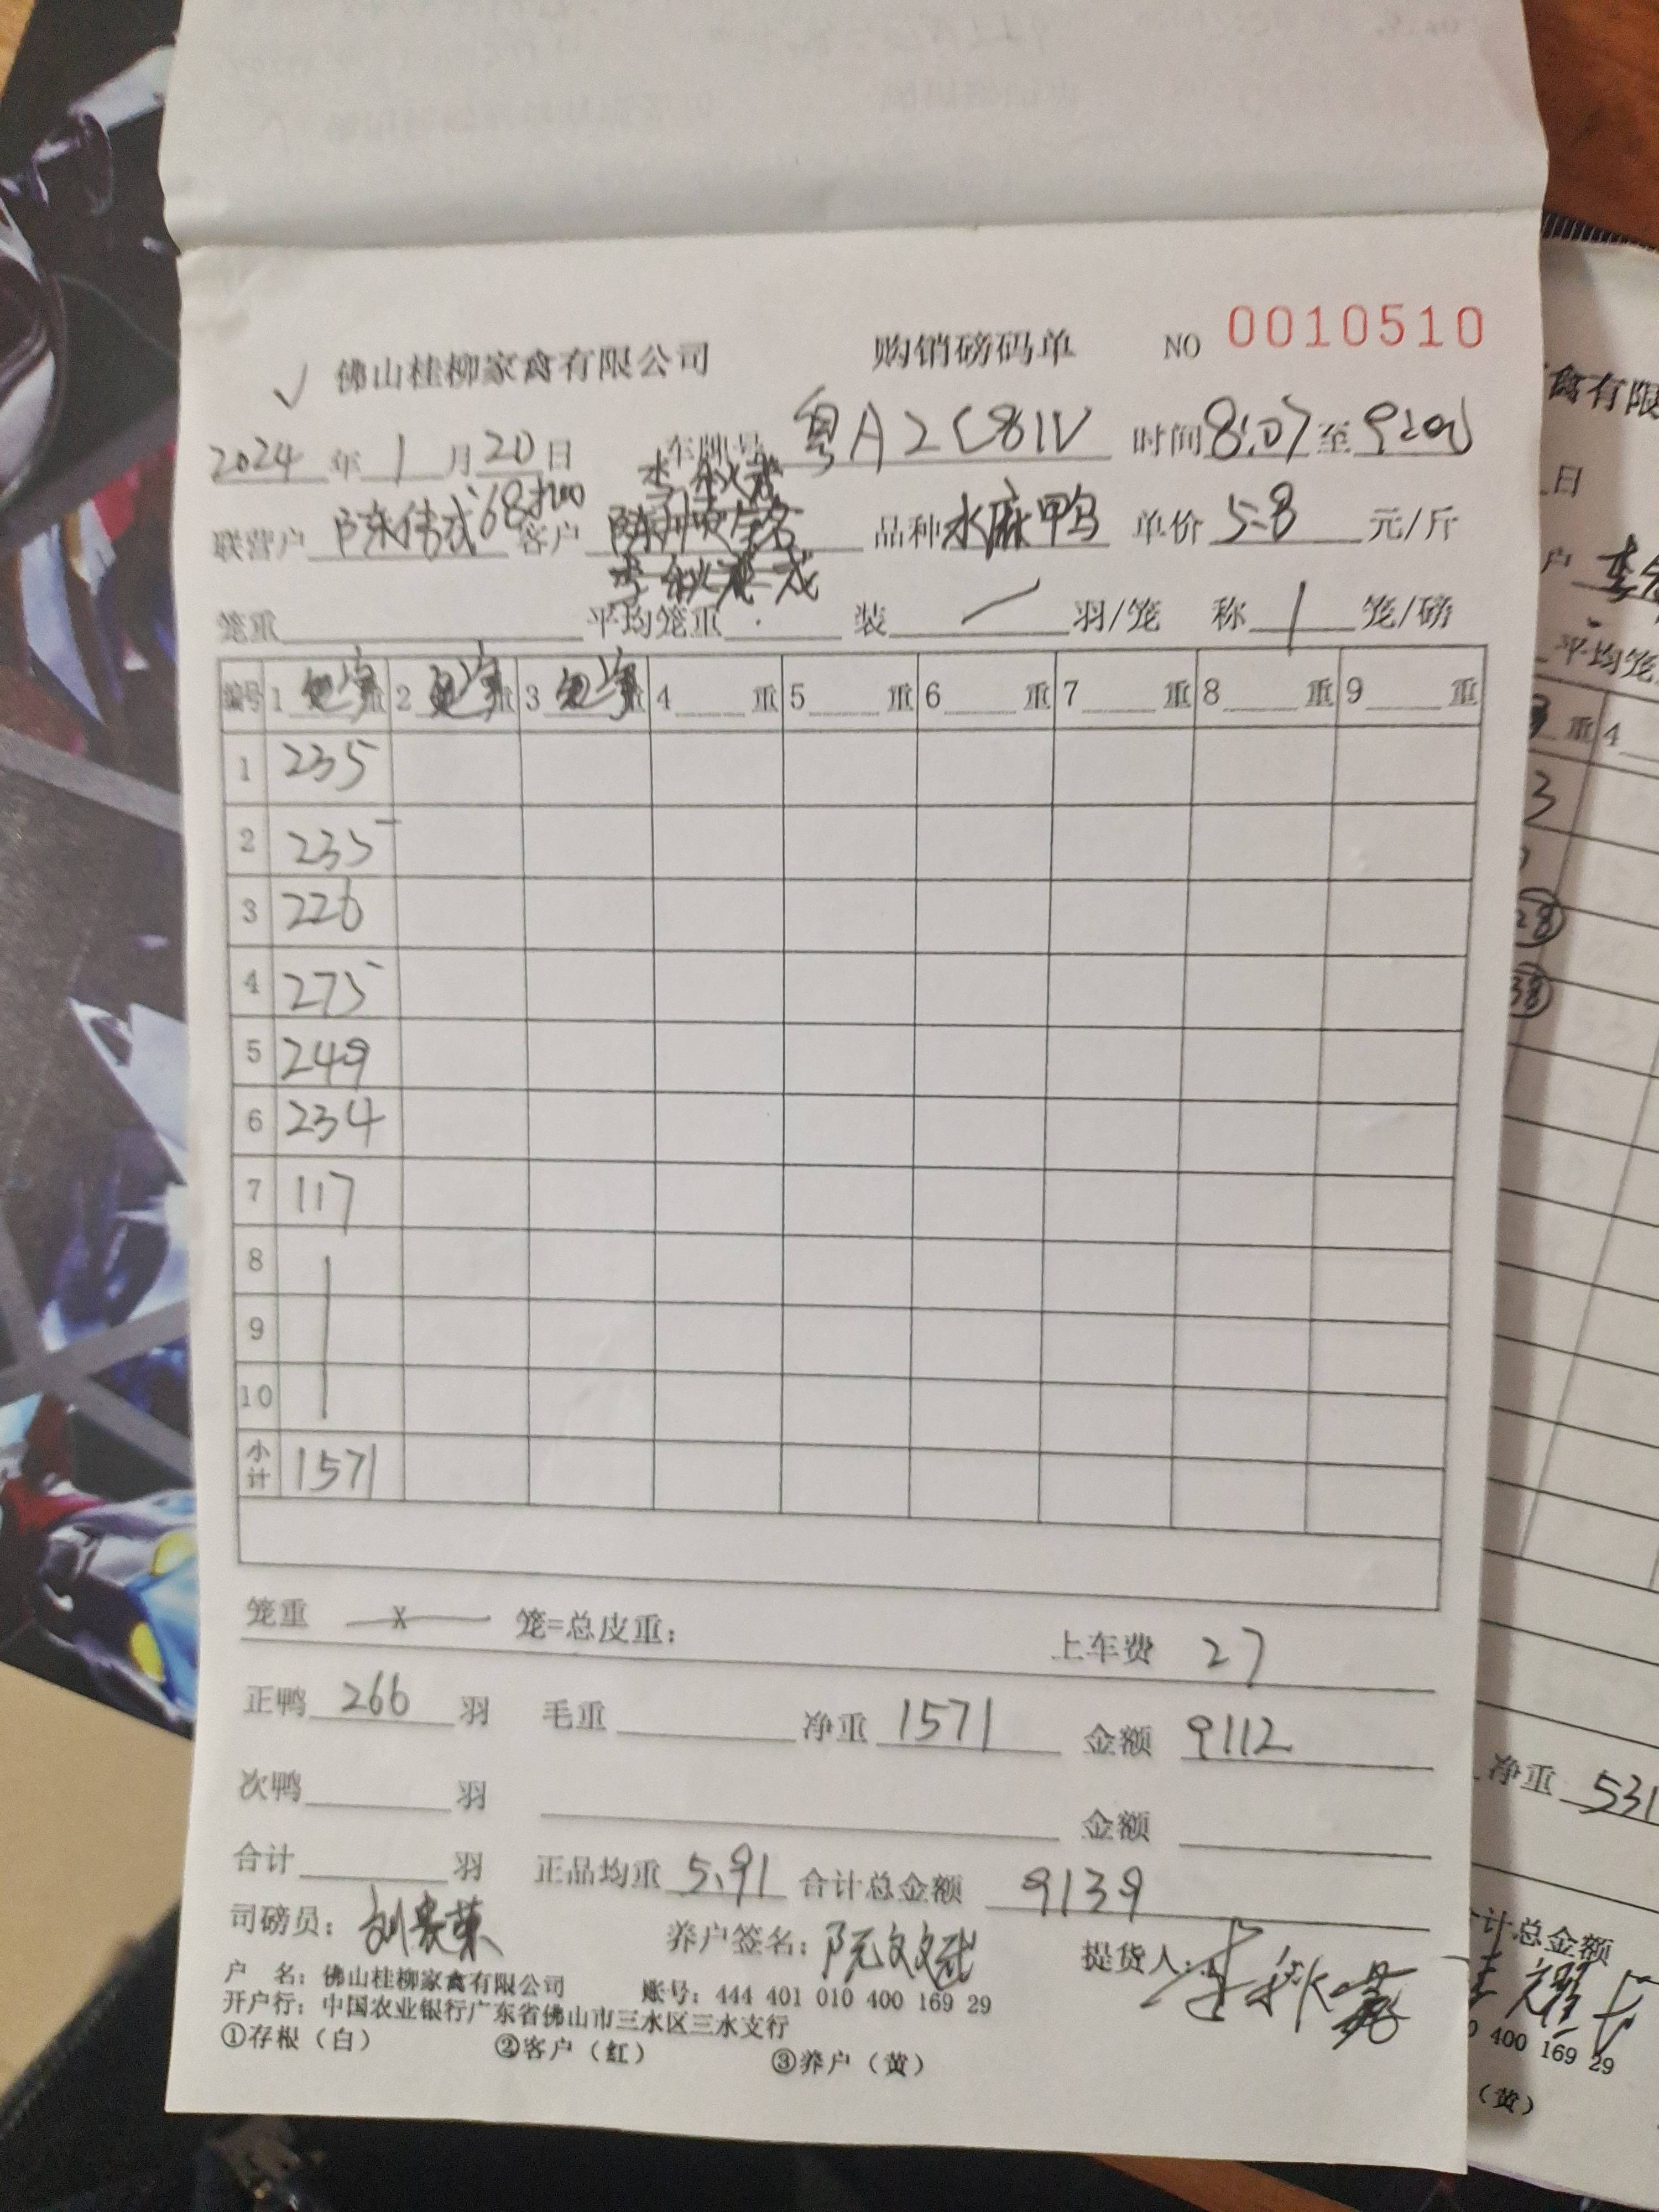 佛山桂柳家禽有限公司 购销磅码单 NO 0010510
2024 年 1 月 20 日 车牌号 粤A2C81V 时间 8:07 至
联营户 陈伟武 客户 品种 水麻鸭 单价 5.8 元/斤
笼重 平均笼重 装 羽/笼 称 1 笼/磅
编号 1 重 2 重 3 重 4 重 5 重 6 重 7 重 8 重 9 重
1 235
2 235
3 226
4 275
5 249
6 234
7 117
8
9
10
小计 1571
笼重 x 笼=总皮重: 上车费 27
正鸭 266 羽 毛重 净重 1571 金额 9112
次鸭 羽 金额
合计 羽 正品均重 5.91 合计总金额 9139
司磅员: 养户签名: 提货人:
户 名: 佛山桂柳家禽有限公司 账号: 444 401 010 400 169 29
开户行: 中国农业银行广东省佛山市三水区三水支行
①存根（白） ②客户（红） ③养户（黄）
禽有限
日
户
平均笼
重 4
净重 531
计总金额
0 400 169 29
（黄）